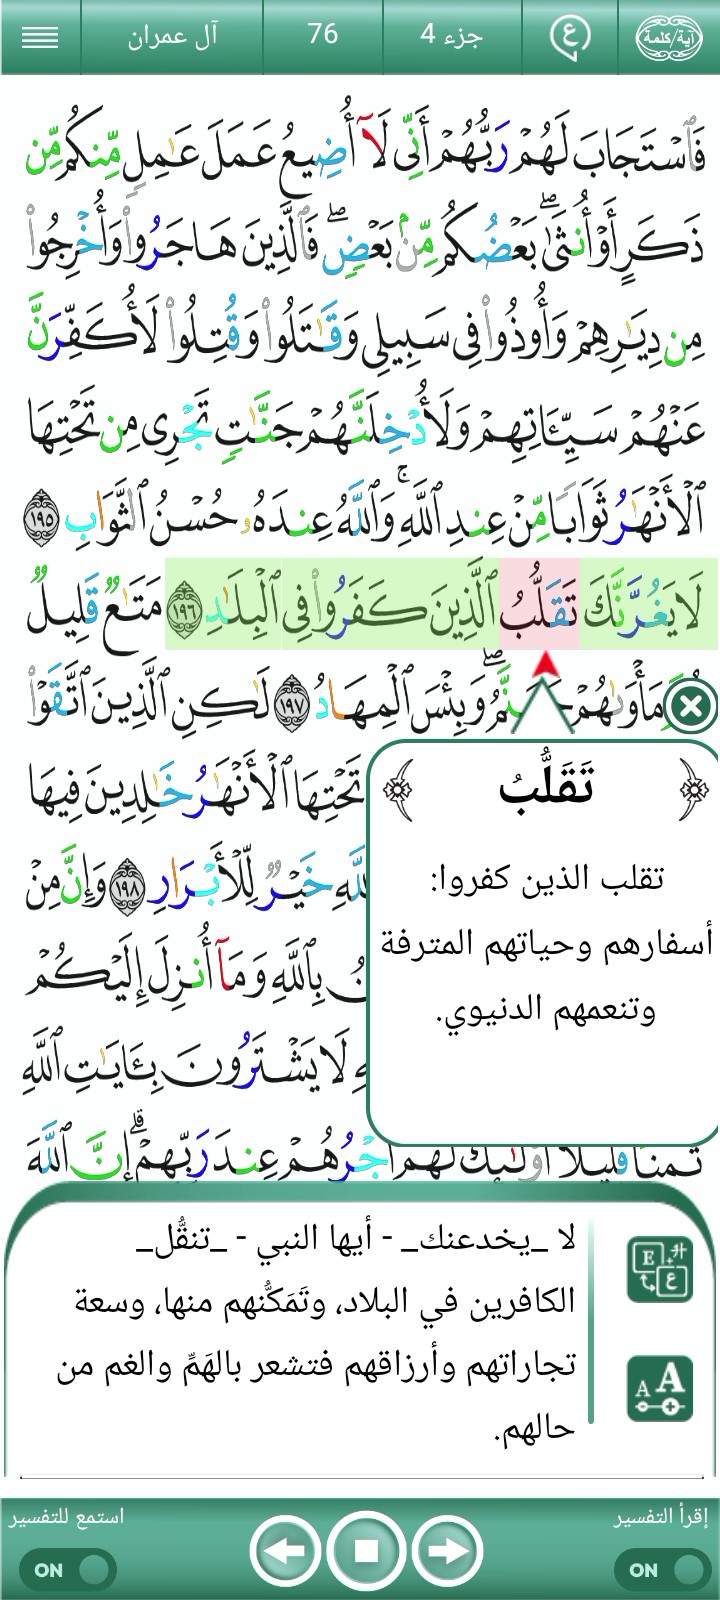 آية/كلمة
ع
جزء 4
76
آل عمران
فَٱسْتَجَابَ لَهُمْ رَبُّهُمْ أَنِّى لَآ أُضِيعُ عَمَلَ عَـٰمِلٍ مِّنكُم مِّن
ذَكَرٍ أَوْ أُنثَىٰ ۖ بَعْضُكُم مِّنۢ بَعْضٍ ۖ فَٱلَّذِينَ هَاجَرُوا۟ وَأُخْرِجُوا۟
مِن دِيَـٰرِهِمْ وَأُوذُوا۟ فِى سَبِيلِى وَقَـٰتَلُوا۟ وَقُتِلُوا۟ لَأُكَفِّرَنَّ
عَنْهُمْ سَيِّـَٔاتِهِمْ وَلَأُدْخِلَنَّهُمْ جَنَّـٰتٍ تَجْرِى مِن تَحْتِهَا
ٱلْأَنْهَـٰرُ ثَوَابًا مِّنْ عِندِ ٱللَّهِ ۚ وَٱللَّهُ عِندَهُۥ حُسْنُ ٱلثَّوَابِ ١٩٥
لَا يَغُرَّنَّكَ تَقَلُّبُ ٱلَّذِينَ كَفَرُوا۟ فِى ٱلْبِلَـٰدِ ١٩٦ مَتَـٰعٌ قَلِيلٌ
مَأْوَىٰهُمْ جَهَنَّمُ ۖ وَبِئْسَ ٱلْمِهَادُ ١٩٧ لَـٰكِنِ ٱلَّذِينَ ٱتَّقَوْا۟
تَحْتِهَا ٱلْأَنْهَـٰرُ خَـٰلِدِينَ فِيهَا
خَيْرٌ لِّلْأَبْرَارِ ١٩٨ وَإِنَّ مِنْ
بِٱللَّهِ وَمَآ أُنزِلَ إِلَيْكُمْ
لَا يَشْتَرُونَ بِـَٔايَـٰتِ ٱللَّهِ
ثَمَنًا قَلِيلًا أُو۟لَـٰٓئِكَ لَهُمْ أَجْرُهُمْ عِندَ رَبِّهِمْ ۗ إِنَّ ٱللَّهَ
تَقَلُّبُ
تقلب الذين كفروا:
أسفارهم وحياتهم المترفة
وتنعمهم الدنيوي.
لا _يخدعنك_ - أيها النبي - _تنقُّل_
الكافرين في البلاد، وتَمَكُّنهم منها، وسعة
تجاراتهم وأرزاقهم فتشعر بالهَمِّ والغم من
حالهم.
E
ع
A A
إقرأ التفسير
ON
استمع للتفسير
ON